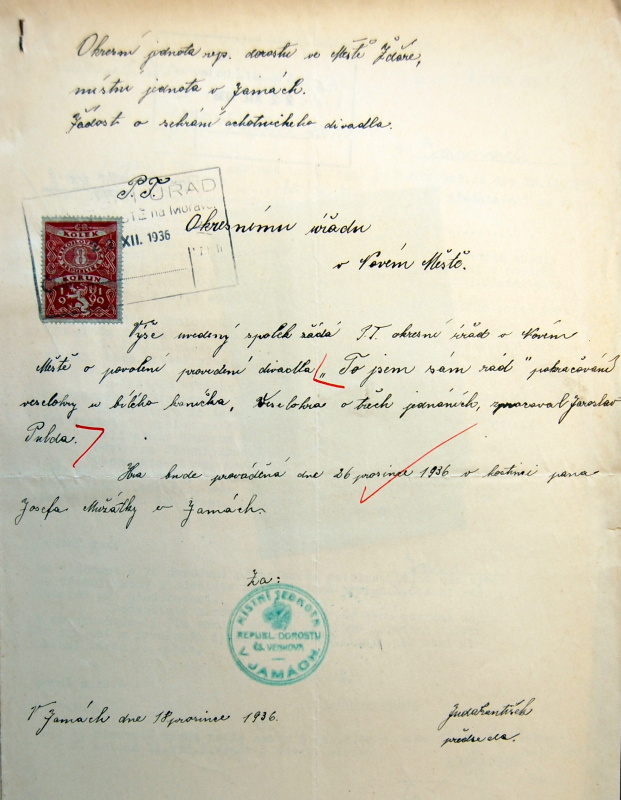 Okresní jednota rep. dorostu ve Městě Žďáře,
místní jednota v Jamách.
Žádost o schrání ochotnického divadla.
P.T.
ÚŘAD
na Morav
XII. 1936
KOLEK
8
KORUN
Okresnímu úřadu
v Novém Městě.
Výše uvedený spolek žádá P.T. okresní úřad v Novém
Městě o povolení provedení divadla „To jsem sám rád" pokračování
veselohry u bílého koníčka, Veselohra o třech jednáních, zpracoval Jaroslav
Pulda.
Hra bude prováděná dne 26 prosince 1936 v hostinci pana
Josefa Mužátky v Jamách.
Za:
MÍSTNÍ JEDNOTA
REPUBL. DOROSTU
ČS. VENKOVA
V JAMÁCH.
V Jamách dne 18 prosince 1936.
předseda.